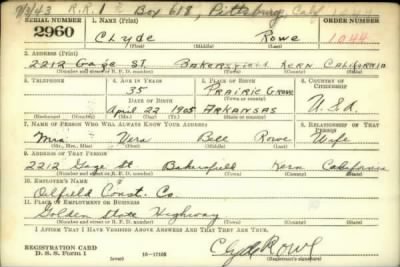 9/9/43 R.R. 1 Box 618, Pittsburg, Calif.
SERIAL NUMBER 1. NAME (Print) ORDER NUMBER
2960 CLyde Rowe 1044
(First) (Middle) (Last)
2. ADDRESS (Print)
2212 Gage ST. BAKERSFIELD KERN CALIFORNIA
(Number and street or R. F. D. number) (Town) (County) (State)
3. TELEPHONE 4. AGE IN YEARS 5. PLACE OF BIRTH 6. COUNTRY OF CITIZENSHIP
35 PRAIRIE GROVE
DATE OF BIRTH (Town or county)
April 22 1905 ARKANSAS U.S.A.
(Exchange) (Number) (Mo.) (Day) (Yr.) (State or country)
7. NAME OF PERSON WHO WILL ALWAYS KNOW YOUR ADDRESS 8. RELATIONSHIP OF THAT PERSON
Mrs. Vera Bell Rowe Wife
(Mr., Mrs., Miss) (First) (Middle) (Last)
9. ADDRESS OF THAT PERSON
2212 Gage St Bakersfield Kern California
(Number and street or R. F. D. number) (Town) (County) (State)
10. EMPLOYER'S NAME
Oilfield Const. Co.
11. PLACE OF EMPLOYMENT OR BUSINESS
Golden State Highway
(Number and street or R. F. D. number) (Town) (County) (State)
I AFFIRM THAT I HAVE VERIFIED ABOVE ANSWERS AND THAT THEY ARE TRUE.
REGISTRATION CARD
D. S. S. Form 1 (over) 16—17105 Clyde Rowe
(Registrant's signature)